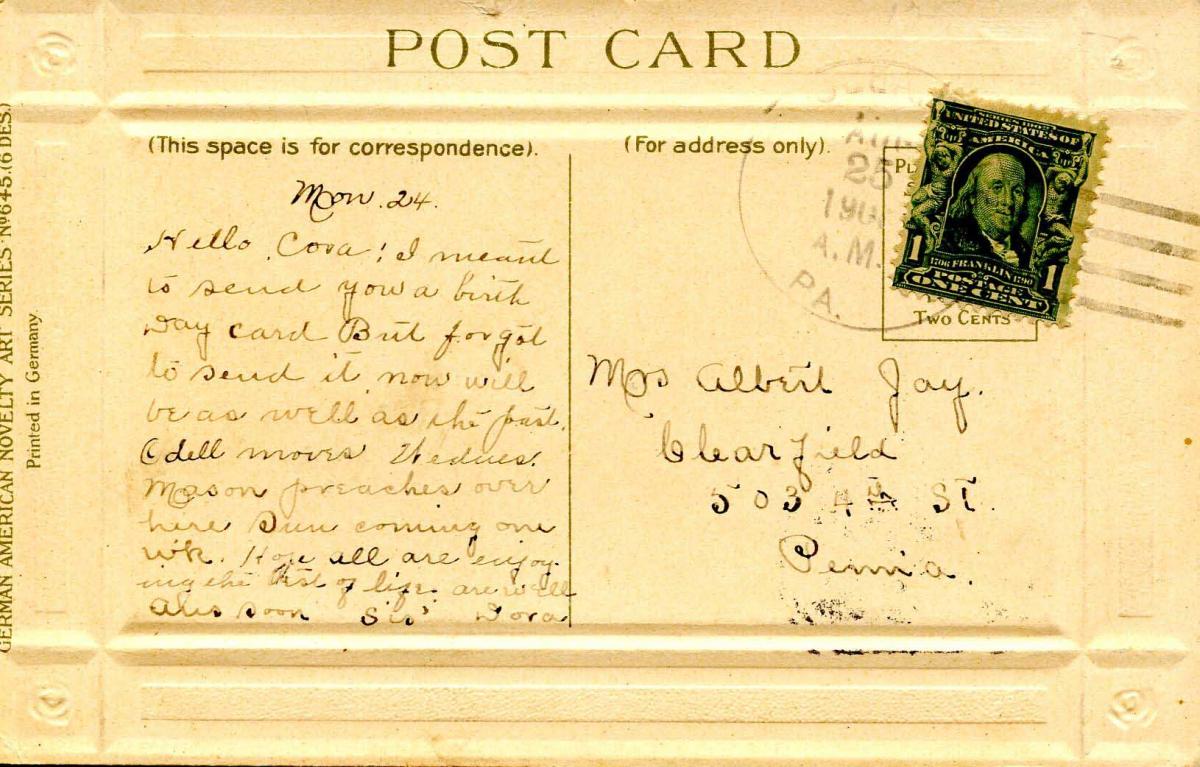 POST CARD
(This space is for correspondence).
Mon. 24.
Hello Cora! I meant
to send you a birth
day card But forgot
to send it now will
be as well as the past.
Odell moves Wednes.
Mason preaches over
here Sun coming one
wk. Hope all are enjoy-
ing the best of life are well
soon Sis' Dora
(For address only).
AUG
25
190
A.M.
PA.
SERIES 1902
UNITED STATES OF
AMERICA
1706 FRANKLIN 1790
1 1
POSTAGE
ONE CENT
TWO CENTS
Mrs Albert Jay.
Clearfield
503 4th St.
Penn'a.
GERMAN AMERICAN NOVELTY ART SERIES Nº 645. (6 DES.)
Printed in Germany